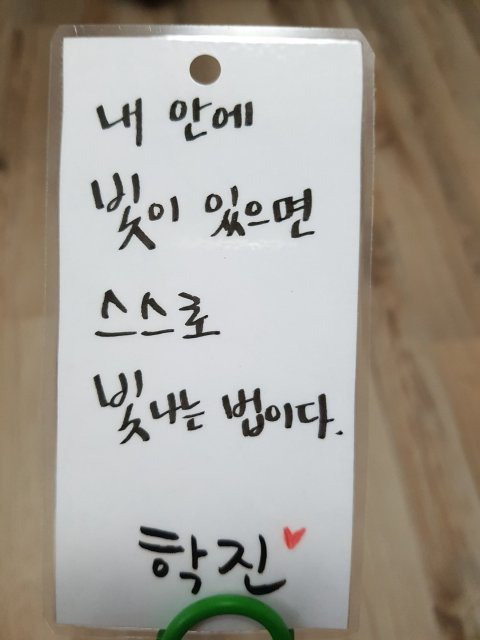 내 안에
빛이 있으면
스스로
빛나는 법이다.
학진